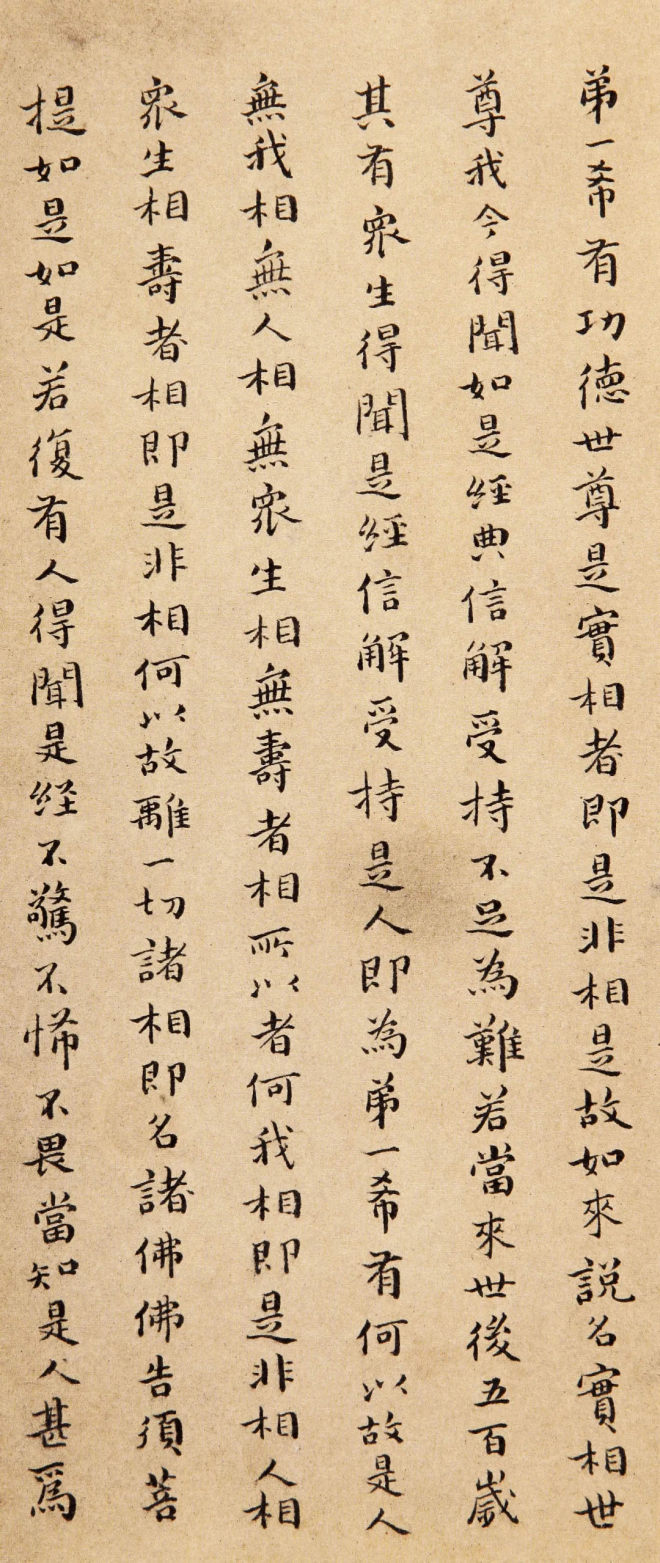 弟一希有功德世尊是實相者即是非相是故如來說名實相世
尊我今得聞如是經典信解受持不足為難若當來世後五百歲
其有眾生得聞是經信解受持是人即為弟一希有何以故是人
無我相無人相無眾生相無壽者相所以者何我相即是非相人相
眾生相壽者相即是非相何以故離一切諸相即名諸佛佛告須菩
提如是如是若復有人得聞是経不驚不怖不畏當知是人甚爲